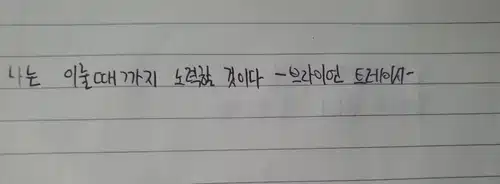 나는 이눌때까지 노력할 것이다 -브라이언 트레이시-